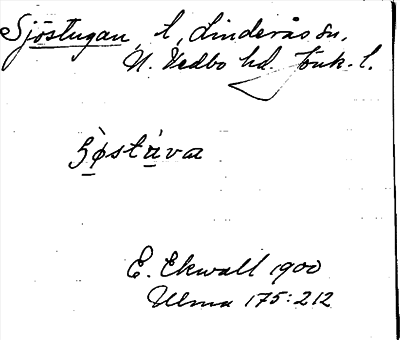 Sjöstugan, t, Linderås sn,
N. Vedbo hd. Jönk. l.
Sø̀stúva
E. Ekwall 1900
Ulma 175:212